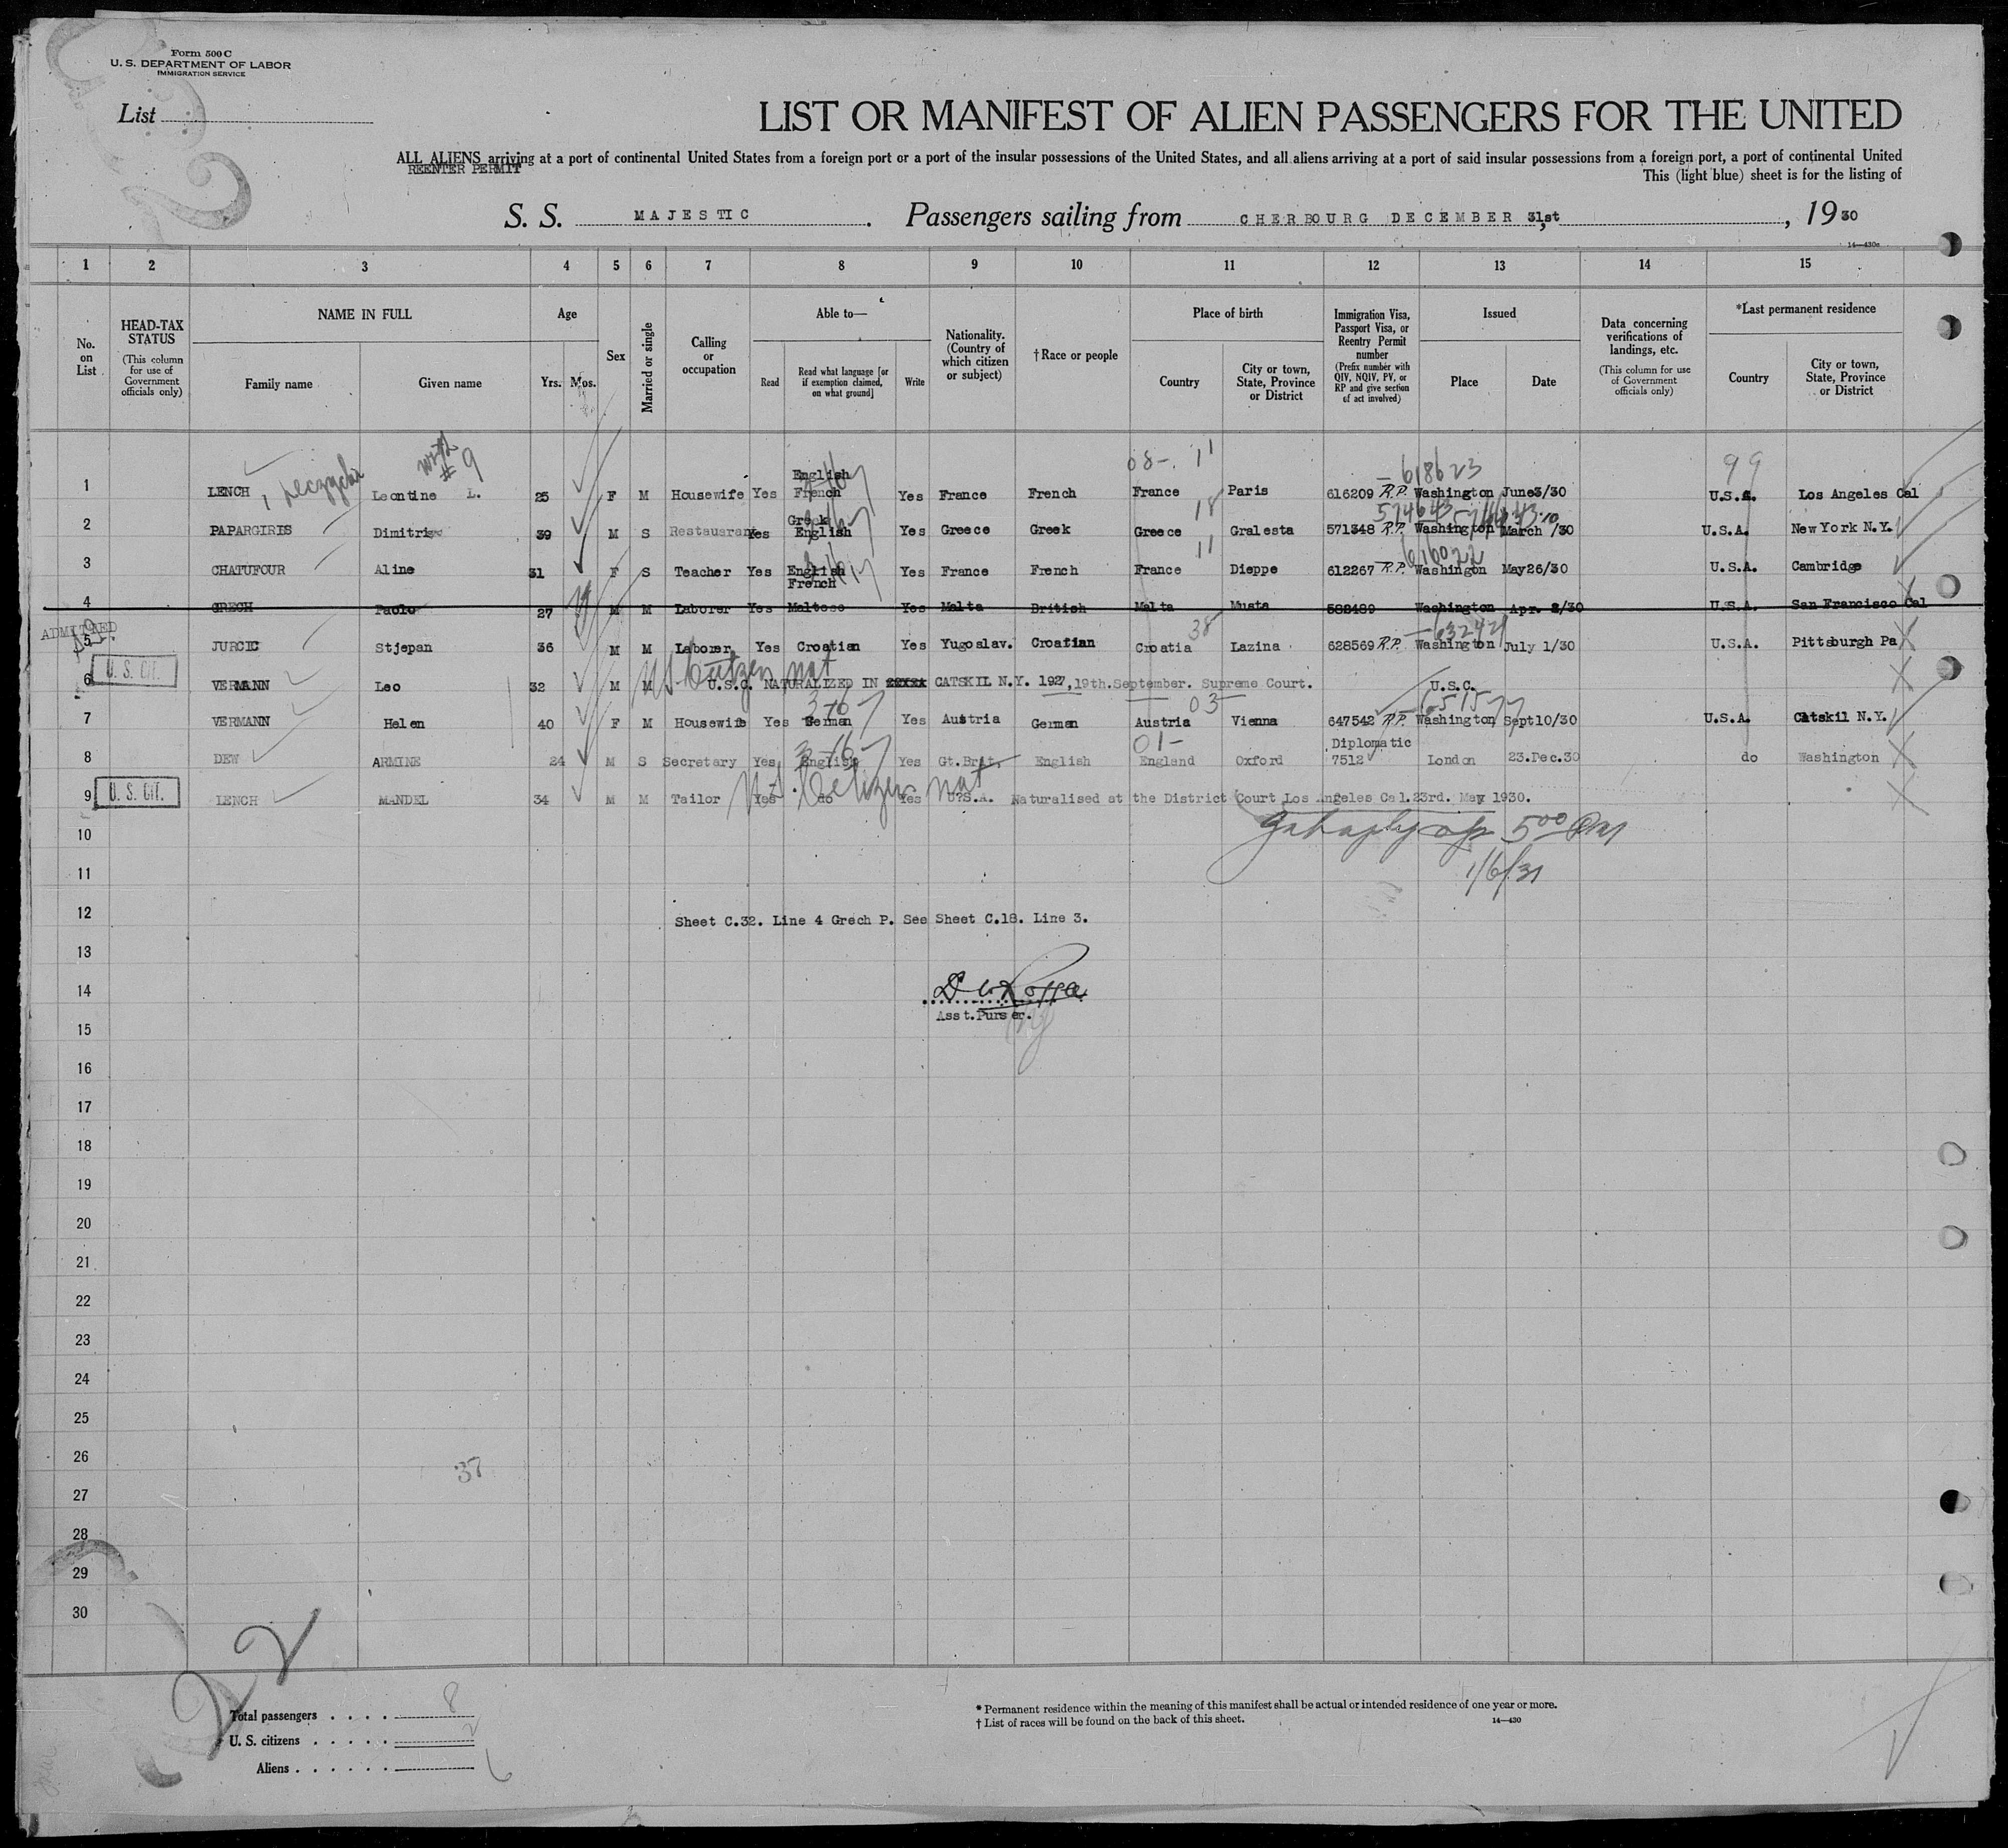 Form 500 C
U. S. DEPARTMENT OF LABOR
IMMIGRATION SERVICE
List
LIST OR MANIFEST OF ALIEN PASSENGERS FOR THE UNITED
ALL ALIENS arriving at a port of continental United States from a foreign port or a port of the insular possessions of the United States, and all aliens arriving at a port of said insular possessions from a foreign port, a port of continental United
REENTER PERMIT
This (light blue) sheet is for the listing of
S. S. MAJESTIC. Passengers sailing from CHERBOURG DECEMBER 31st, 1930
14—430c
1 2 3 4 5 6 7 8 9 10 11 12 13 14 15
No. on List
HEAD-TAX STATUS
(This column for use of Government officials only)
NAME IN FULL
Family name
Given name
Age
Yrs. Mos.
Sex
Married or single
Calling or occupation
Able to—
Read
Read what language [or if exemption claimed, on what ground]
Write
Nationality. (Country of which citizen or subject)
† Race or people
Place of birth
Country
City or town, State, Province or District
Immigration Visa, Passport Visa, or Reentry Permit number
(Prefix number with QIV, NQIV, PV, or RP and give section of act involved)
Issued
Place
Date
Data concerning verifications of landings, etc.
(This column for use of Government officials only)
*Last permanent residence
Country
City or town, State, Province or District
with # 9
08-. 11
618623
99
1 LENCH Leontine L. 25 F M Housewife Yes English French Yes France French France Paris 616209 R.P. Washington June3/30 U.S.A. Los Angeles Cal
18
574643
2 PAPARGIRIS Dimitri 39 M S Restaurant Yes Greek English Yes Greece Greek Greece Gralesta 571348 R.P. Washington March /30 U.S.A. New York N.Y.
11
616022
3 CHATUFOUR Aline 31 F S Teacher Yes English French Yes France French France Dieppe 612267 R.P. Washington May26/30 U.S.A. Cambridge
4 GRECH Paolo 27 M M Laborer Yes Maltese Yes Malta British Malta Musta 588489 Washington Apr. 8/30 U.S.A. San Francisco Cal
ADMITTED
38
5 JURCIC Stjepan 36 M M Laborer Yes Croatian Yes Yugoslav. Croatian Croatia Lazina 628569 R.P. Washington July 1/30 U.S.A. Pittsburgh Pa
U. S. CIT.
US Citizen nat
6 VERMANN Leo 32 M M U.S.C. NATURALIZED IN CATSKIL N.Y. 1927, 19th. September. Supreme Court. U.S.C.
03
651577
7 VERMANN Helen 40 F M Housewife Yes German Yes Austria German Austria Vienna 647542 R.P. Washington Sept10/30 U.S.A. Catskil N.Y.
01-
8 DEW ARMINE 24 M S Secretary Yes English Yes Gt.Brit. English England Oxford Diplomatic 7512 London 23.Dec.30 do Washington
U. S. CIT.
U.S. Citizen nat
9 LENCH MANDEL 34 M M Tailor Yes do Yes U.S.A. Naturalised at the District Court Los Angeles Cal. 23rd. May 1930.
10
500
11
1/6/31
12 Sheet C.32. Line 4 Grech P. See Sheet C.18. Line 3.
13
14
Asst. Purser.
15
16
17
18
19
20
21
22
23
24
25
26
37
27
28
29
30
22
Total passengers . . . . 8
U. S. citizens . . . . . 2
Aliens . . . . . . 6
* Permanent residence within the meaning of this manifest shall be actual or intended residence of one year or more.
† List of races will be found on the back of this sheet.
14—430